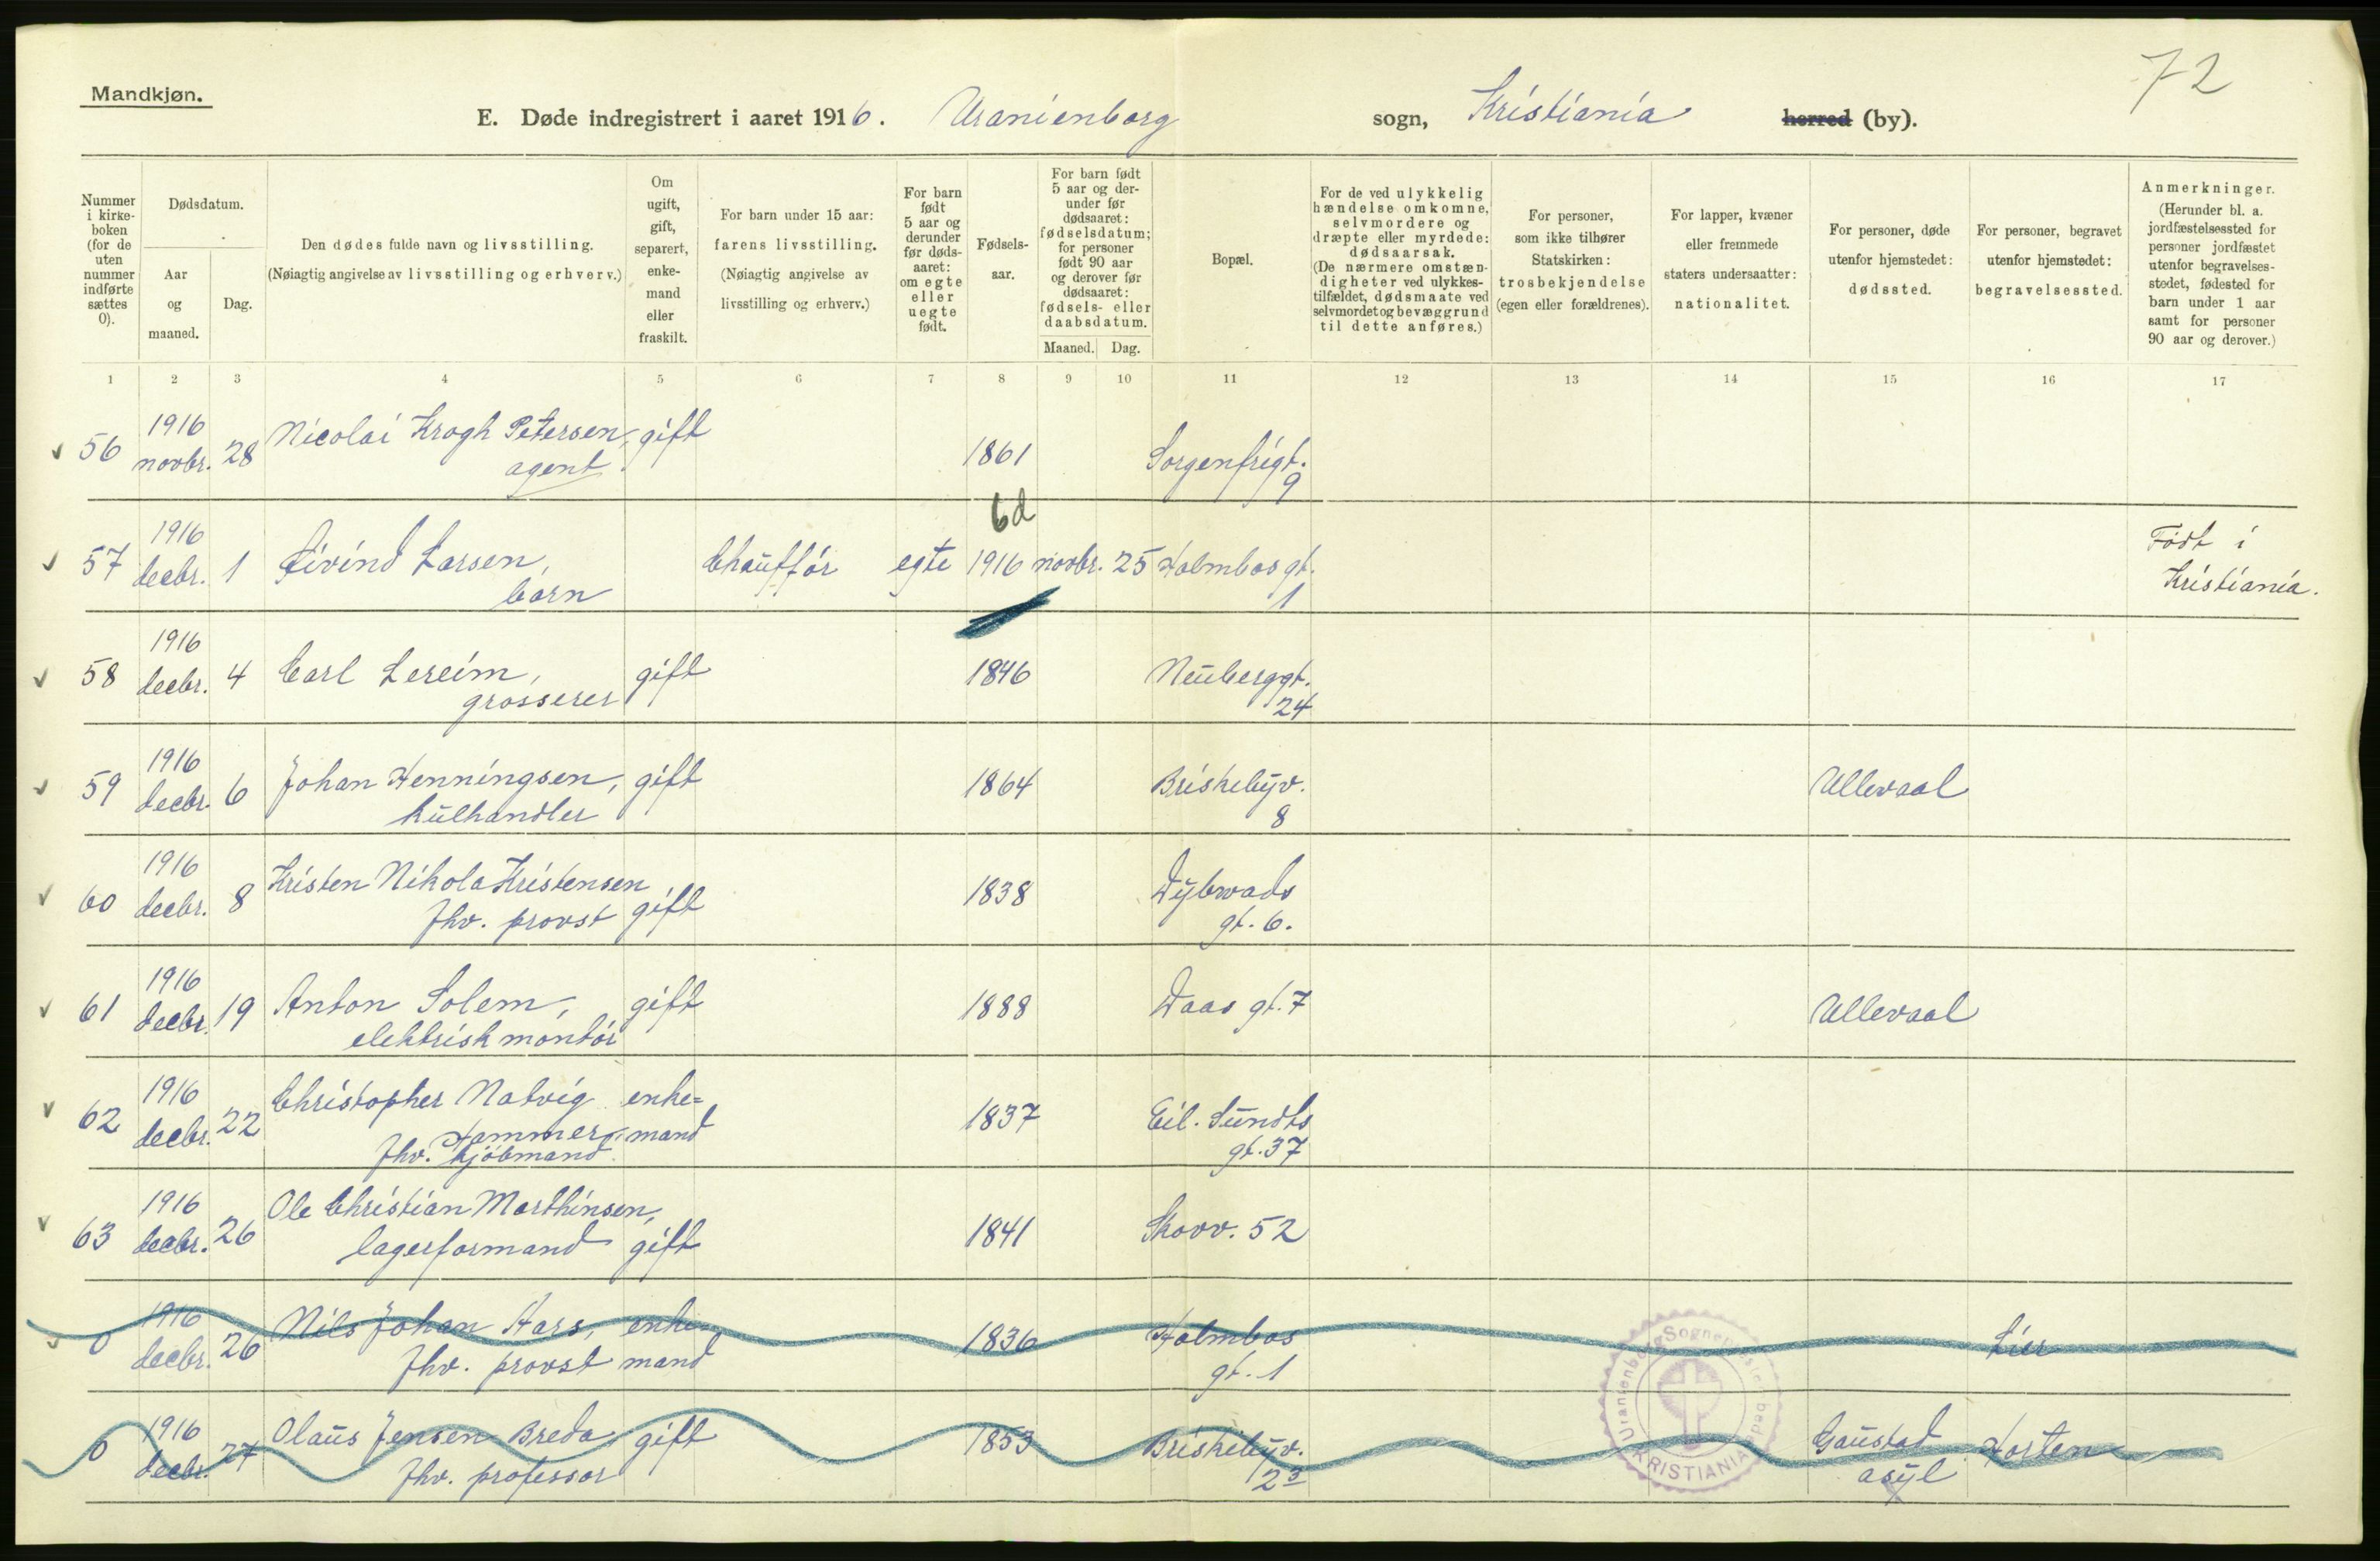 72
Mandkjøn.
E. Døde indregistrert i aaret 1916. Uranienborg sogn, Kristiania herred (by).
Nummer i kirke-boken (for de uten nummer indførte sættes 0).
Dødsdatum.
Aar og maaned.
Dag.
Den dødes fulde navn og livsstilling.
(Nøiagtig angivelse av livsstilling og erhverv.)
Om ugift, gift, separert, enke-mand eller fraskilt.
For barn under 15 aar: farens livsstilling.
(Nøiagtig angivelse av livsstilling og erhverv.)
For barn født 5 aar og derunder før døds-aaret: om egte eller uegte født.
Fødsels-aar.
For barn født 5 aar og der-under før dødsaaret: fødselsdatum; for personer født 90 aar og derover før dødsaaret: fødsels- eller daabsdatum.
Maaned. Dag.
Bopæl.
For de ved ulykkelig hændelse omkomne, selvmordere og dræpte eller myrdede: dødsaarsak.
(De nærmere omstæn-digheter ved ulykkes-tilfældet, dødsmaate ved selvmordet og bevæggrund til dette anføres.)
For personer, som ikke tilhører Statskirken: trosbekjendelse (egen eller forældrenes).
For lapper, kvæner eller fremmede staters undersaatter: nationalitet.
For personer, døde utenfor hjemstedet: dødssted.
For personer, begravet utenfor hjemstedet: begravelsessted.
Anmerkninger.
(Herunder bl. a. jordfæstelsessted for personer jordfæstet utenfor begravelses-stedet, fødested for barn under 1 aar samt for personer 90 aar og derover.)
1 2 3 4 5 6 7 8 9 10 11 12 13 14 15 16 17
56 1916 novbr. 28 Nicolai Krogh Petersen, agent gift 1861 Sorgenfrigt. 9
6d
57 1916 decbr. 1 Eivind Larsen, barn Chaufför egte 1916 novbr. 25 Holmbos gt. 1 Født i Kristiania.
58 1916 decbr. 4 Carl Lereim, grosserer gift 1846 Neuberggt. 24
59 1916 decbr. 6 Johan Henningsen, kulhandler gift 1864 Briskebyv. 8 Ullevaal
60 1916 decbr. 8 Kristen Nikolai Kristensen fhv. provst gift 1838 Dybwads gt. 6.
61 1916 decbr. 19 Anton Solem, elektrisk montör gift 1888 Daas gt. 7 Ullevaal
62 1916 decbr. 22 Christopher Natvig Hammer, fhv. kjöbmand. enke=mand 1837 Eil. Sundts gt. 37
63 1916 decbr. 26 Ole Christian Marthinsen, lagerformand gift 1841 Skovv. 52
0 1916 decbr. 26 Nils Johan Aars, fhv. provst enke=mand 1836 Holmbos gt. 1 Lier
0 1916 decbr. 27 Olaus Jensen Breda, fhv. professor gift 1853 Briskebyv. 23 Gaustad asyl Horten
Uranienborg Sogneprestembede KRISTIANIA